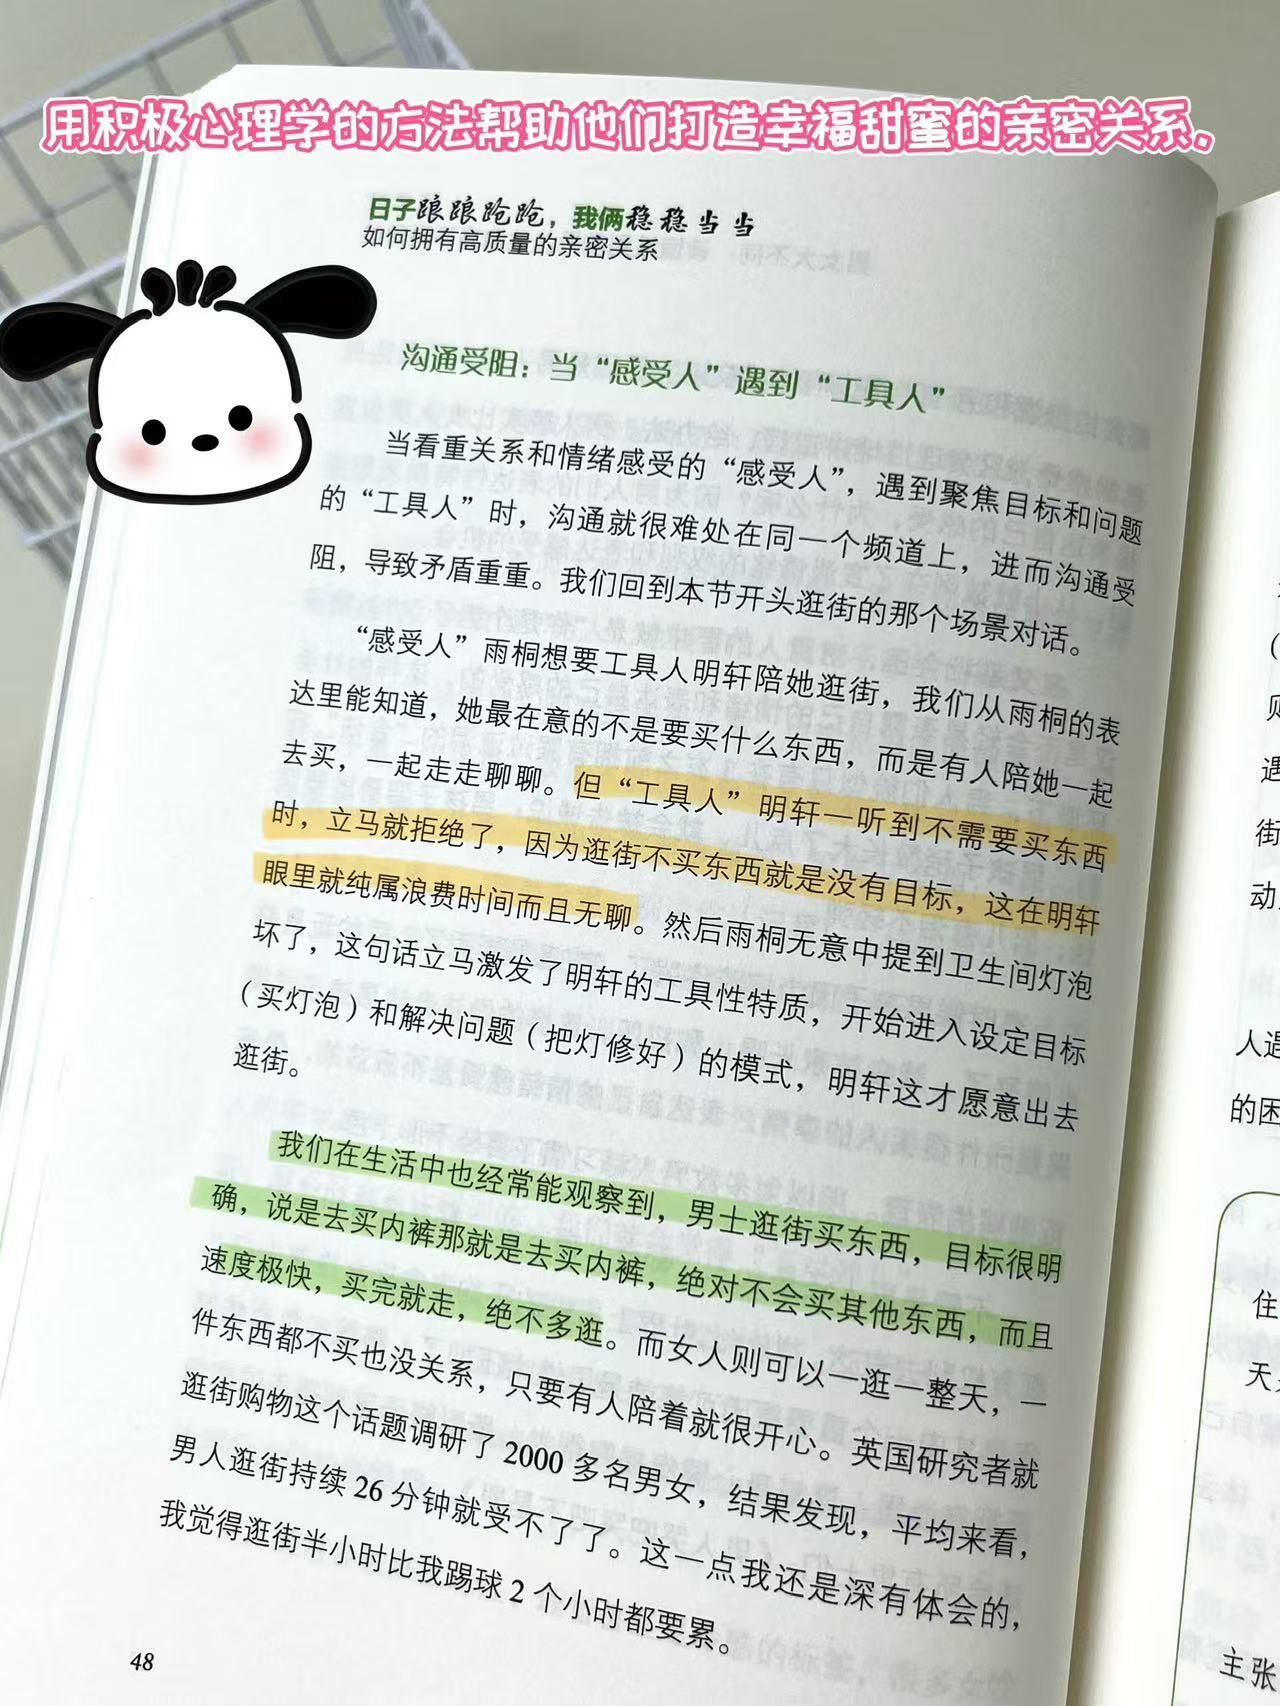 用积极心理学的方法帮助他们打造幸福甜蜜的亲密关系.
日子踉踉跄跄，我俩稳稳当当
如何拥有高质量的亲密关系
沟通受阻：当“感受人”遇到“工具人”
当看重关系和情绪感受的“感受人”，遇到聚焦目标和问题
的“工具人”时，沟通就很难处在同一个频道上，进而沟通受
阻，导致矛盾重重。我们回到本节开头逛街的那个场景对话。
“感受人”雨桐想要工具人明轩陪她逛街，我们从雨桐的表
达里能知道，她最在意的不是要买什么东西，而是有人陪她一起
去买，一起走走聊聊。但“工具人”明轩一听到不需要买东西
时，立马就拒绝了，因为逛街不买东西就是没有目标，这在明轩
眼里就纯属浪费时间而且无聊。然后雨桐无意中提到卫生间灯泡
坏了，这句话立马激发了明轩的工具性特质，开始进入设定目标
（买灯泡）和解决问题（把灯修好）的模式，明轩这才愿意出去
逛街。
我们在生活中也经常能观察到，男士逛街买东西，目标很明
确，说是去买内裤那就是去买内裤，绝对不会买其他东西，而且
速度极快，买完就走，绝不多逛。而女人则可以一逛一整天，一
件东西都不买也没关系，只要有人陪着就很开心。英国研究者就
逛街购物这个话题调研了 2000 多名男女，结果发现，平均来看，
男人逛街持续 26 分钟就受不了了。这一点我还是深有体会的，
我觉得逛街半小时比我踢球 2 个小时都要累。
48
（
则
遇
街
动
人遇
的困
住
天
主张